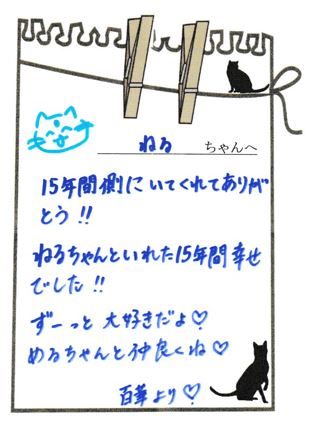 ねる ちゃんへ
15年間側にいてくれてありが
とう!!
ねるちゃんといれた15年間幸せ
でした!!
ずーっと大好きだよ♡
めるちゃんと仲良くね♡
百華より♡